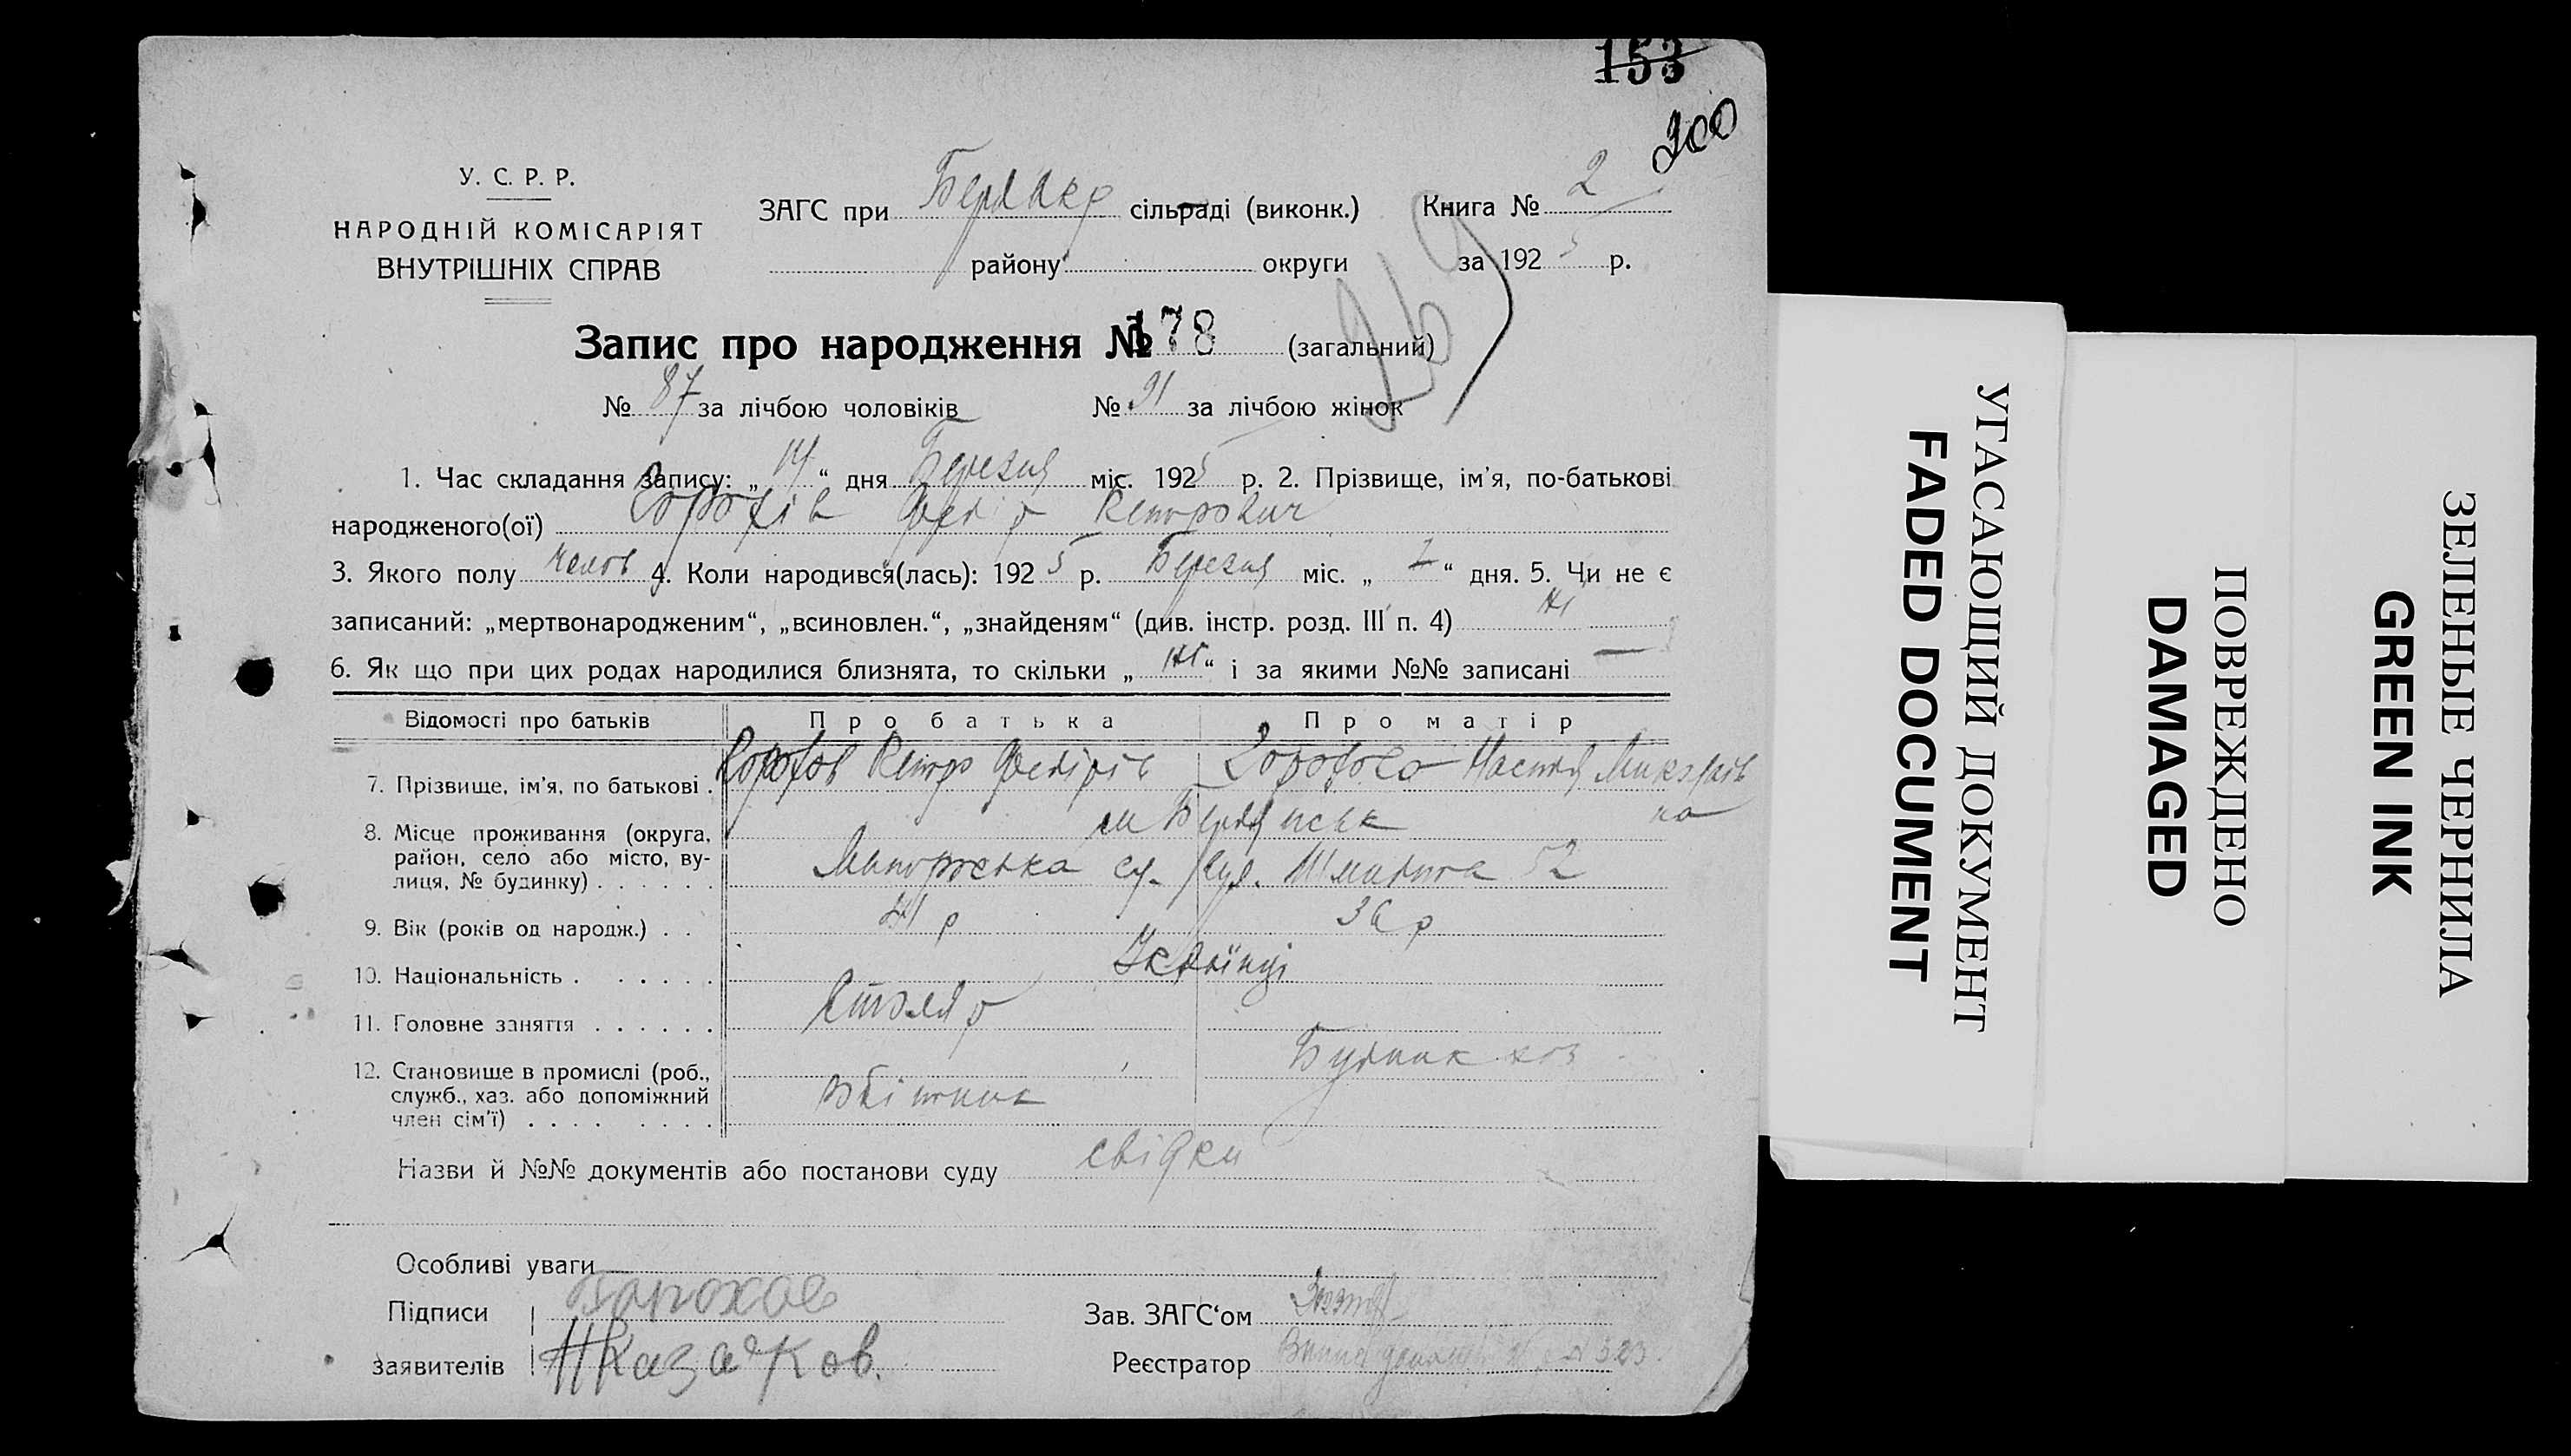 153
200
У. С. Р. Р.
НАРОДНІЙ КОМІСАРІЯТ
ВНУТРІШНІХ СПРАВ
ЗАГС при сільраді (виконк.) Книга № 2
району округи за 192 5 р.
Запис про народження № 178 (загальний)
№ 87 за лічбою чоловіків № 91 за лічбою жінок
1. Час складання запису: „ 14 “ дня Березня міс. 192 5 р. 2. Прізвище, ім’я, по-батькові
народженого(ої) Петрович
3. Якого полу чолов 4. Коли народився(лась): 192 5 р. Березня міс. „ “ дня. 5. Чи не є
записаний: „мертвонародженим“, „всиновлен.“, „знайденям“ (див. інстр. розд. III п. 4) ні
6. Як що при цих родах народилися близнята, то скільки „ ні “ і за якими №№ записані —
Відомості про батьків Про батька Про матір
7. Прізвище, ім’я, по батькові . Петро Федорів Настя
8. Місце проживання (округа, м Бердянськ
район, село або місто, ву-
лиця, № будинку) . . . . . . вул. Шмидта 52
9. Вік (років од народж.) . . 41 р 36 р
10. Національність . . . . . . Українці
11. Головне заняття . . . . . . Столяр
12. Становище в промислі (роб.,
служб., хаз. або допоміжний
член сім’ї) . . . . . . . .
Назви й №№ документів або постанови суду свідки
Особливі уваги
Підписи Зав. ЗАГС‘ом
заявителів Казачков. Реєстратор
УГАСАЮЩИЙ ДОКУМЕНТ
FADED DOCUMENT
ПОВРЕЖДЕНО
DAMAGED
ЗЕЛЕНЫЕ ЧЕРНИЛА
GREEN INK